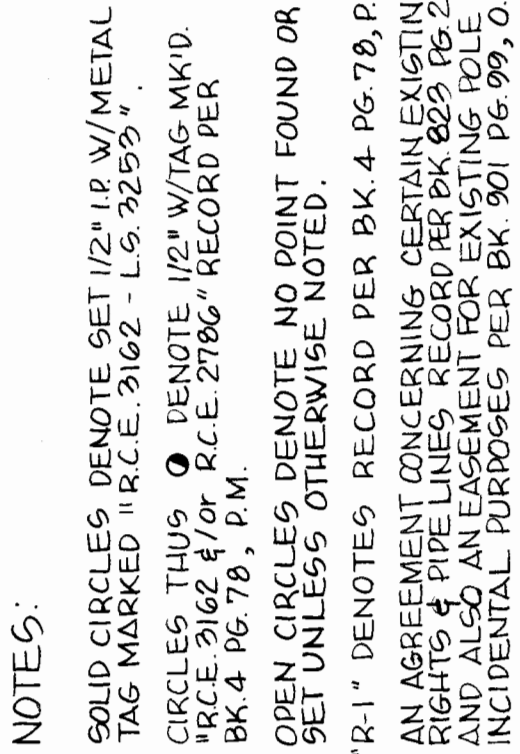 NOTES:
SOLID CIRCLES DENOTE SET 1/2" I.P. W/METAL
TAG MARKED "R.C.E. 3162 - L.S. 3253".
CIRCLES THUS DENOTE 1/2" W/TAG MK'D.
"R.C.E. 3162 &/or R.C.E. 2786" RECORD PER
BK. 4 PG. 78, P.M.
OPEN CIRCLES DENOTE NO POINT FOUND OR
SET UNLESS OTHERWISE NOTED.
"R-1" DENOTES RECORD PER BK. 4 PG. 78, P.
AN AGREEMENT CONCERNING CERTAIN EXISTIN
RIGHTS & PIPE LINES RECORD PER BK. 823 PG. 2
AND ALSO AN EASEMENT FOR EXISTING POLE
INCIDENTAL PURPOSES PER BK. 901 PG. 99, O.